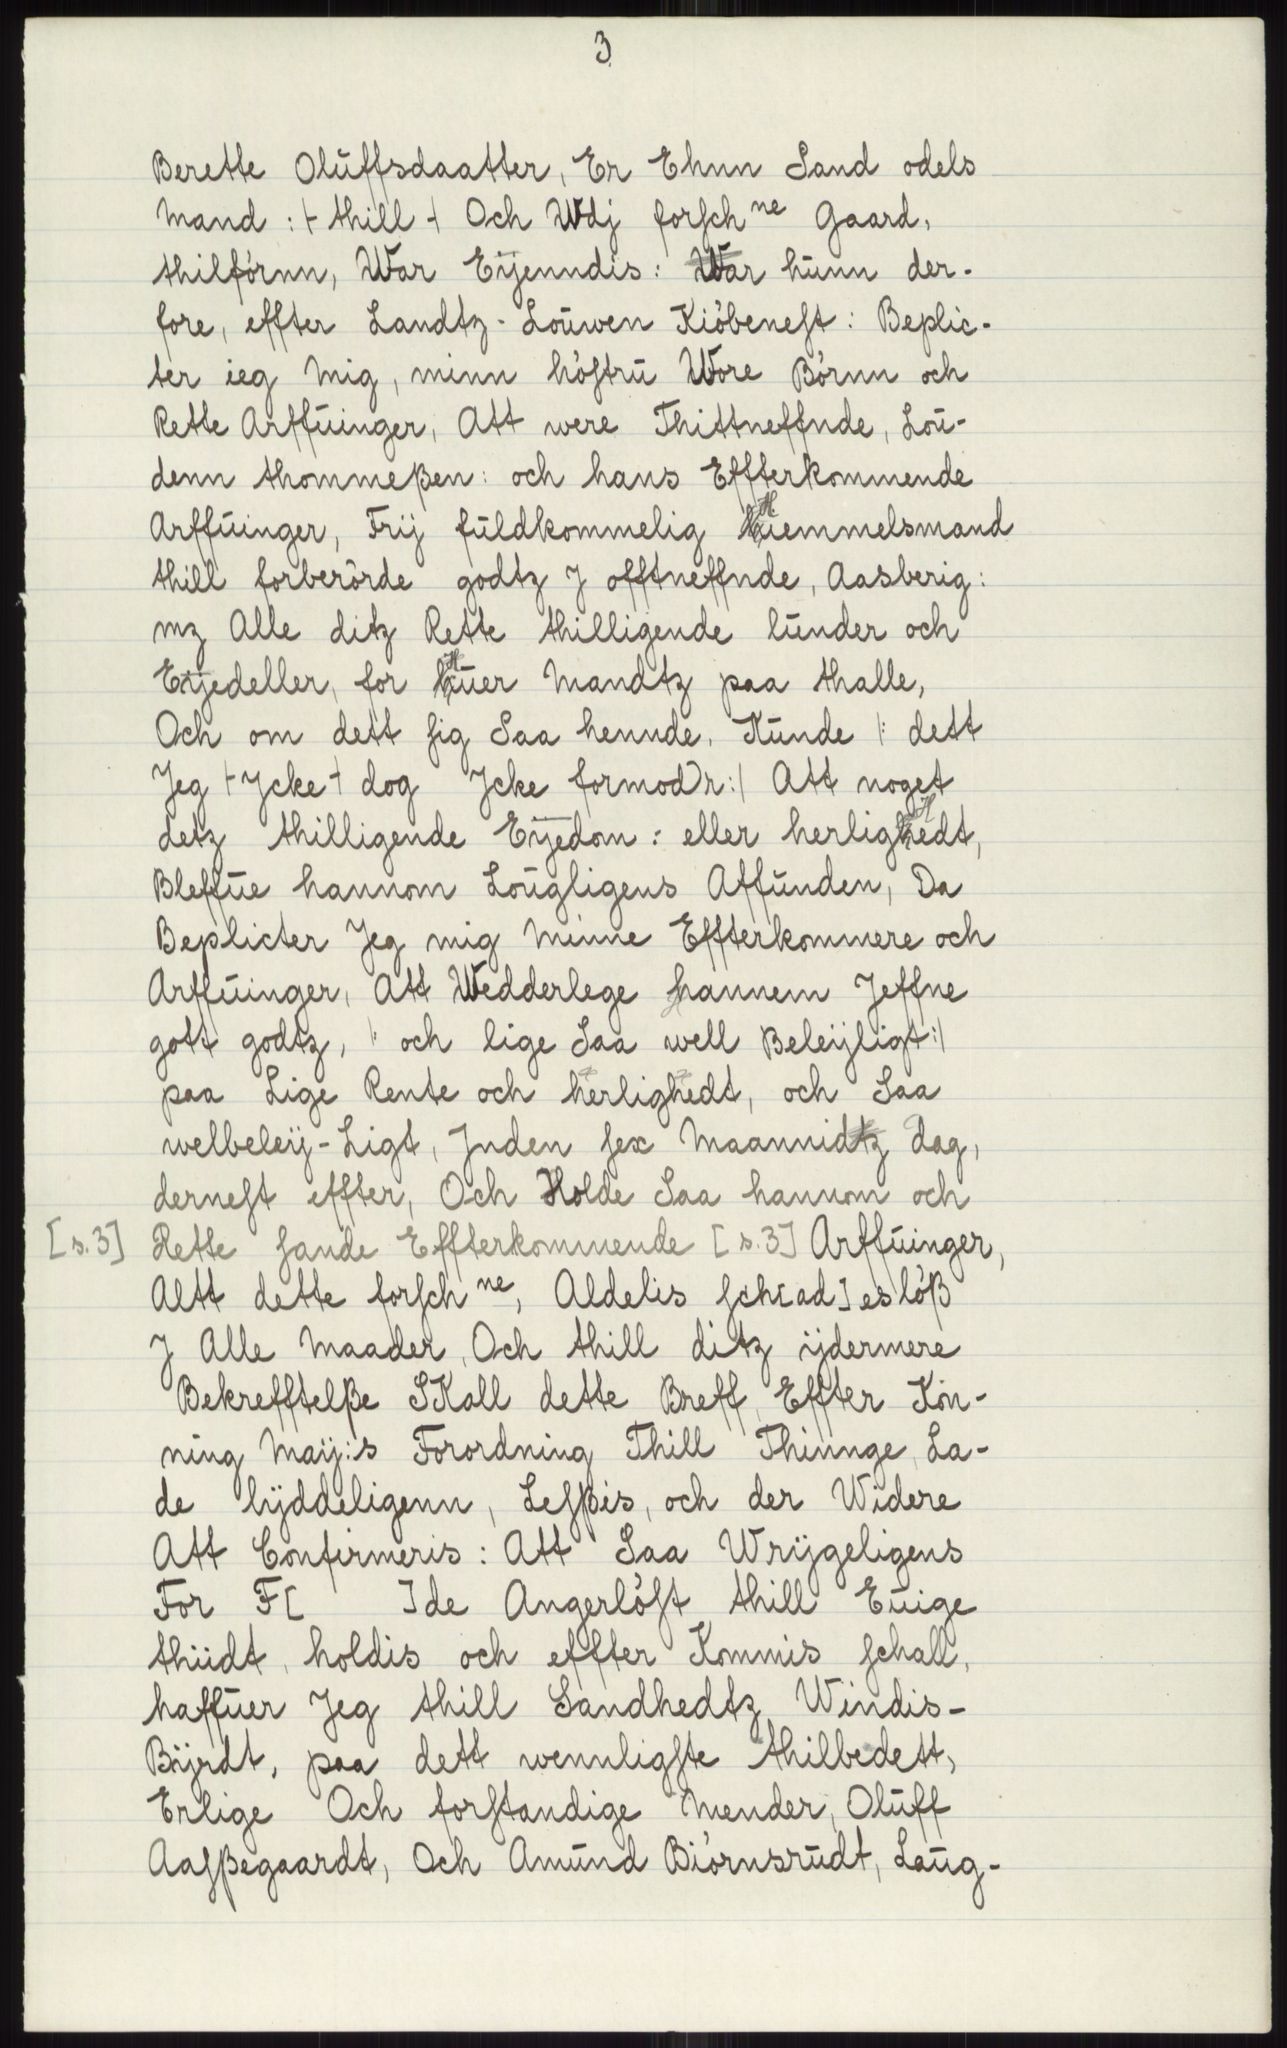 3
Berette Olūffsdaatter, Er Ehnn Sand odels
Mand :⊢ thill ⊣ Och Wdj forschne Gaard,
thilfórnn, War Eÿenndis: War hūnn der-
fore, effter Landtz-Loūwen Kióbenest: Beplic-
ter ieg Mig, minn hóstrū Wore Bórnn och
Rette Arffūinger, Att were Thittneffnde, Loū-
denn thommeßen: och hans Effterkommende
Arffūinger, Frij fūldkommelig Hiemmelsmand
thill forberórde godtz J offtneffnde, Aasberig:
mz Alle ditz Rette thilligende lūnder och
Eÿedeller, for Hūer Mandtz paa thalle,
Och om dett sig Saa hennde, Kūnde |: dett
Jeg ⊢ Jcke ⊣ dog Jcke formodr:| Att noget
detz thilligende Eÿedom: eller herligHedt,
Bleffūe hannom Loūgligens Affūnden, Da
Beplicter Jeg mig Minne Effterkommere och
Arffūinger, Att Wedderlege hannem Jeffne
gott godtz, |: och lige Saa well Beleÿligt:|
paa Lige Rente och herlighedt, och Saa
welbeleÿ-Ligt, Jnden sex Maannidtz dag,
dernest effter, Och Holde Saa hannom och
[s.3] Rette sande Effterkommende [s.3] Arffūinger,
Altt dette forschne, Aldelis sch[ad]eslóß
J Alle Maader, Och thill ditz ÿdermere
Bekrefftelße SKall dette Breff, Effter Kón-
ning Maÿ:s Forordning Thill Thinnge, La-
de lÿddeligenn, Lesßis, och der Widere
Att Confirmeris: Att Saa Wrÿgeligens
For F[ ]de Angerlóst thill Eūige
thiidt, holdis och effter Kommis schall,
haffūer Jeg thill Sandhedtz Windis-
Bÿrdt, paa dett wennligste thilbedett,
Erlige Och forstandige Mender, Olūff
Aasßegaardt, Och Amūnd Biórnsrūdt, Laūg-